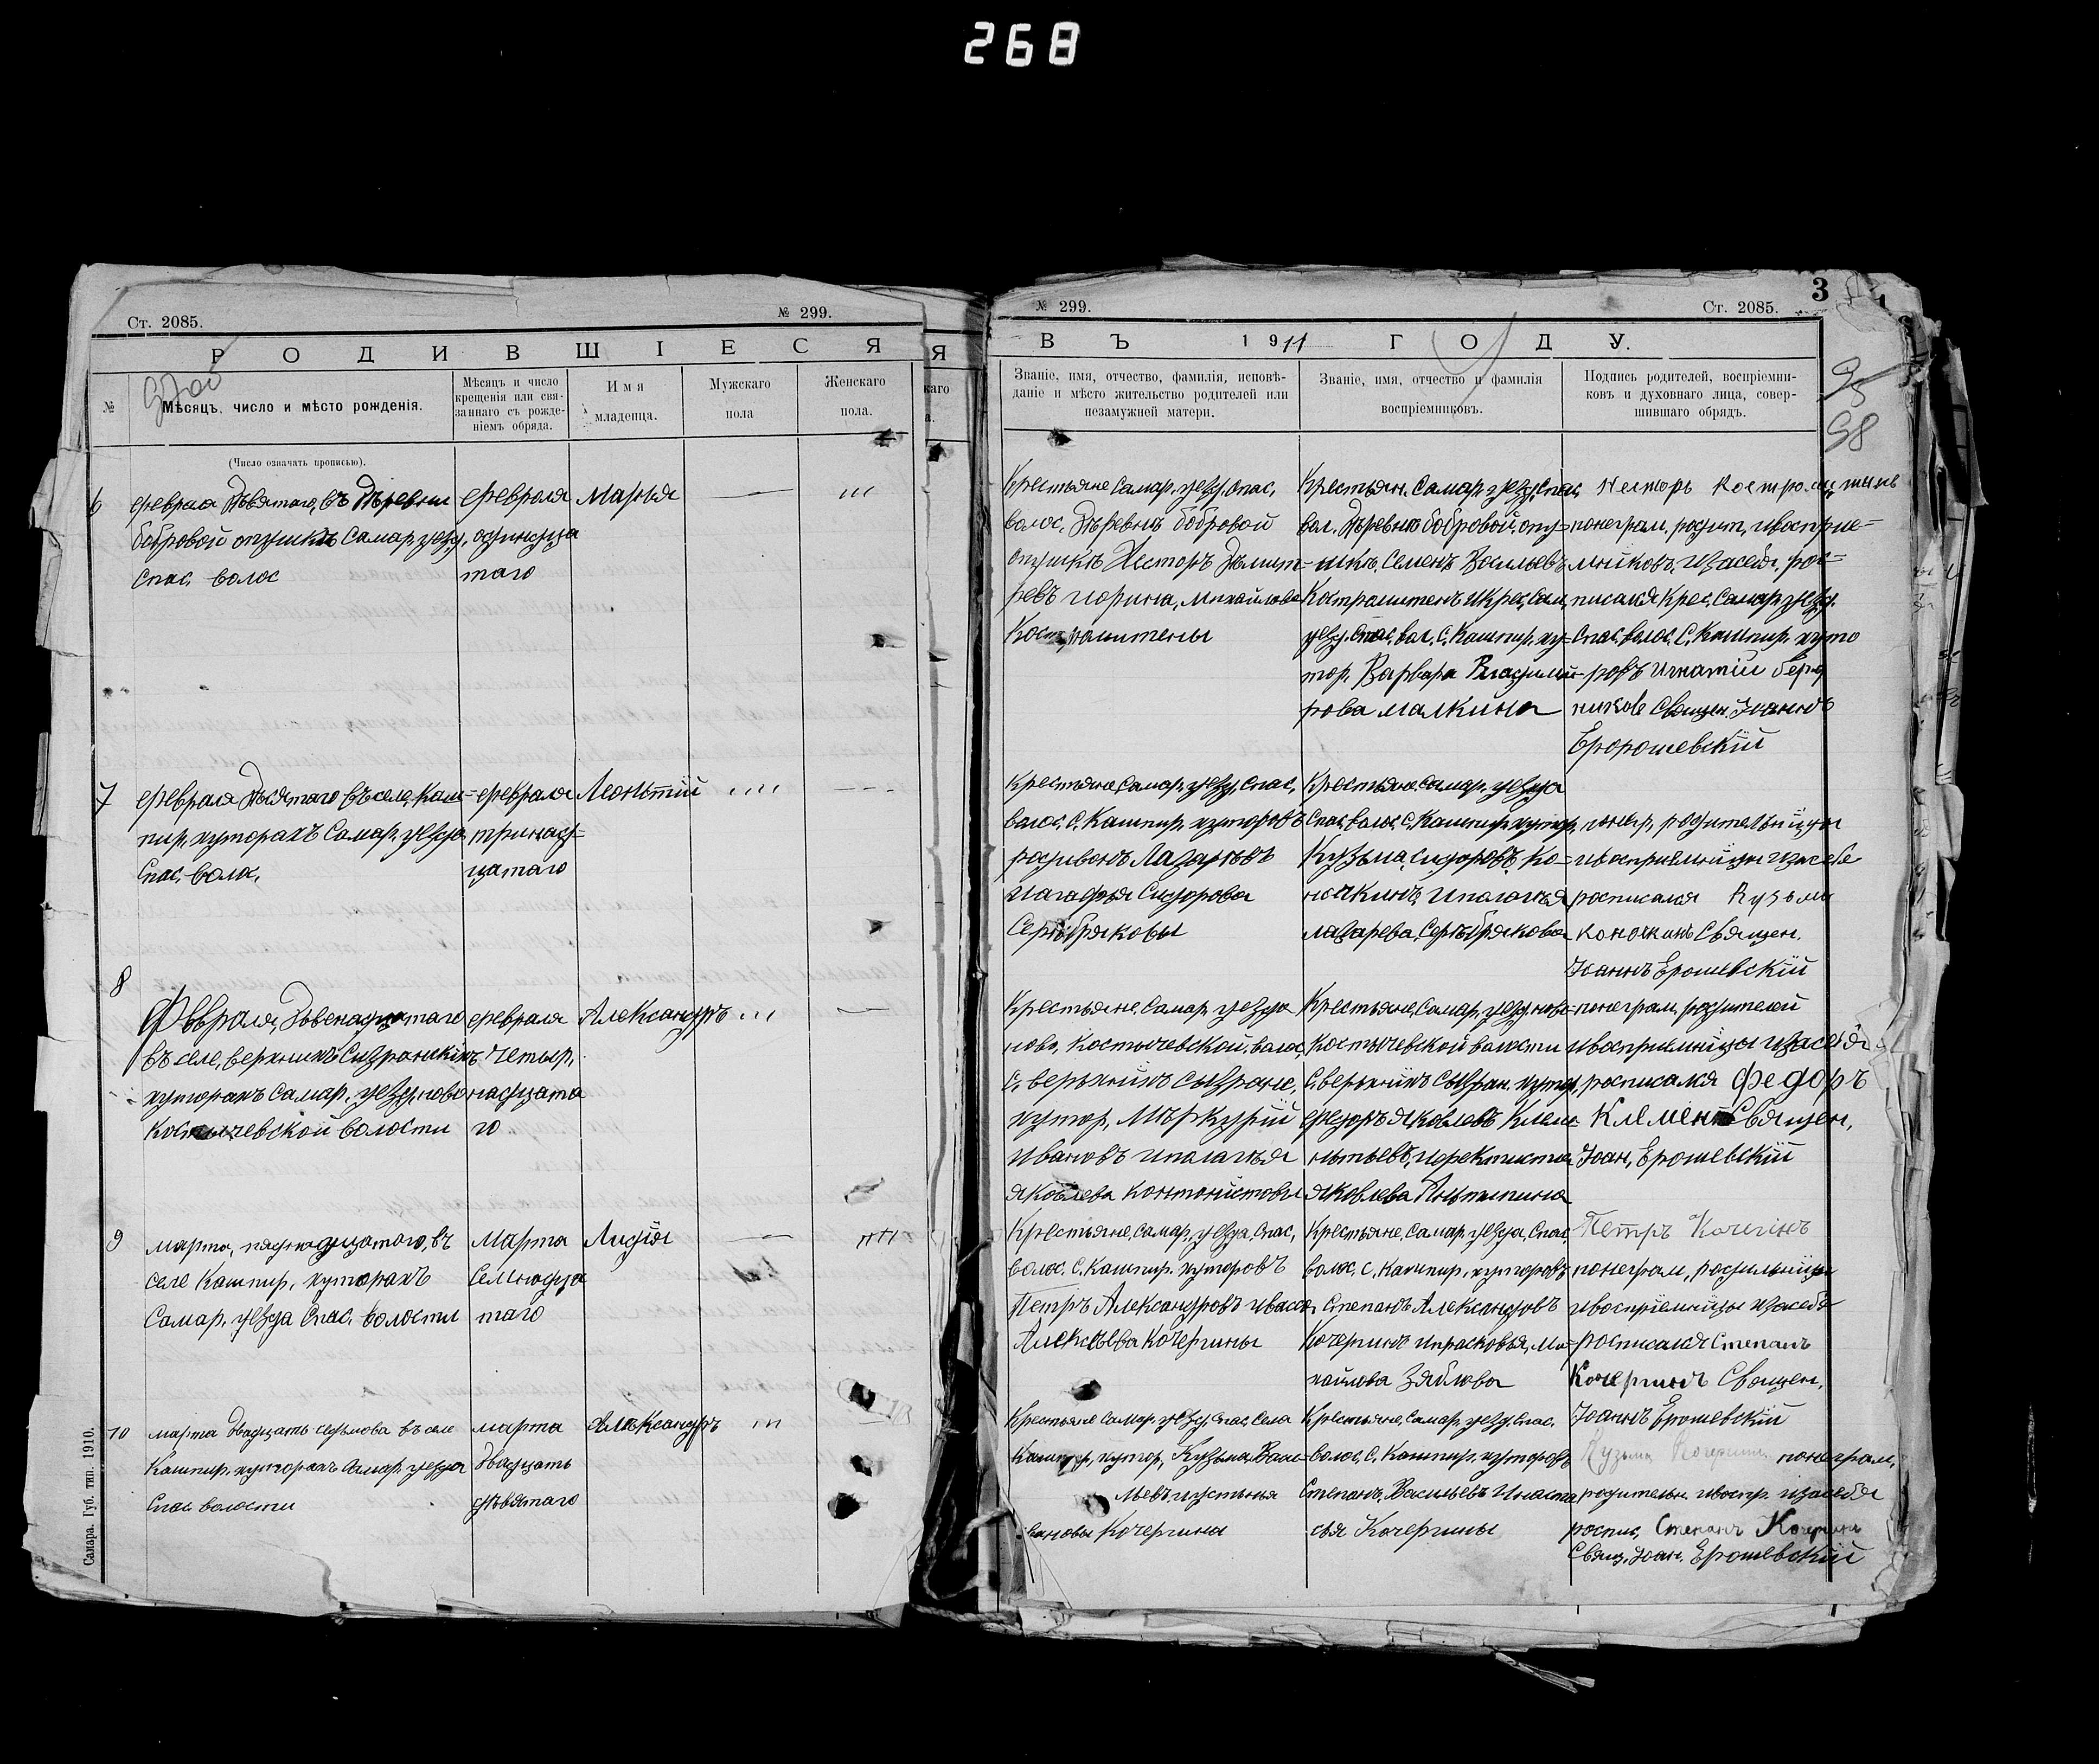 268
Ст. 2085.
№ 299.
РОДИВШІЕСЯ
№
Мѣсяцъ, число и мѣсто рожденія.
Мѣсяцъ и число
крещенія или свя-
заннаго съ рожде-
ніемъ обряда.
Имя
младенца.
Мужскаго
пола
Женскаго
пола.
(Число означать прописью).
6
февраля Дѣвятаго, въ Дѣревни
бобровой опушкѣ Самар. уезд,
Спас. волос
февраля
одинадца
таго
Марья
7
февраля Дѣсятаго въ селе, Каш=
пир, хуторахъ Самар. уезда
Спас. воло.
февраля
тринад=
цатаго
Леонтий
8
Феврала, Двенадцатаго
въ селе, верхнихъ Сызранскихъ
хуторахъ Самар. уезд, ново
Костычевской волости
февраля
четыр,
надцата
го
Александръ
9
марта, пятнадцатаго, въ
селе Кашпир, хуторахъ
Самар. уезда Спас. волости
Марта
Семнадца
таго
Лидія
10
марта Двадцать седьмова въ селе
Кашпир. хуторахъ Самар. уезда
Спас. волости
марта
двадцать
дѣвятаго
Алѣксандръ
Самара. Губ. тип. 1910.
Я
№ 299.
Ст. 2085.
3
ВЪ 1911 ГОДУ.
98
Званіе, имя, отчество, фамилія, исповѣ-
даніе и мѣсто жительство родителей или
незамужней матери.
Званіе, имя, отчество и фамилія
воспріемниковъ.
Подпись родителей, воспріемни-
ковъ и духовнаго лица, совер-
шившаго обрядъ.
Крестьяне Самар. уезд, Спас,
волос, Дѣревни бобровой
опушкѣ Несторъ Дьмит=
ревъ Михайлова
Крестьян. Самар. уезд, Спас,
вол. Дѣревни бобровой, опу=
шкѣ, Семенъ Васильевъ
уезд, Спас, вол, С. Кашпир, ху=
тор, Варвара Владими=
рова малкина
Несторъ
понеграм, родит, ивосприе=
мниковъ, изасебя, рос=
писался Крес, Самар. уезд.
Спас, волос, С. Кашпир, хуто
ровъ Игнатій
Священ. Іоаннъ
Крестьяне, Самар, уезд, Спас,
волос, С. Кашпир. хуторовъ
родивонъ Лазаревъ
иагафья Сидорова
Серѣбряковы
Крестьяне, Самар. уезда
Спас, волос, С. Кашпир. хутор,
Кузьма, Сидоровъ, Ко=
ночкинъ, Ипалагѣя
лазарева, Серѣбрякова
понегр, родительницы
ивоспріемницы изасебе
росписался Кузьма
коночкинъ Священ.
Іоаннъ Ерошевскій
Крестьяне, Самар. уезда
ново, Костычевской, волос,
С. верьхнихъ Сызране,
хутор, Мѣркурій
Ивановъ ипалагѣя
яковлева Контонистовы
Крестьяне, Самар, уезд, ново=
Костычевской волости
С. верьхнихъ Сызран. хутор,
федоръ яковлевъ Климе
яковлева
понеграм, родителей
ивоспріемницы изасебя
росписался Федоръ
Священ,
Іоан, Ерошевскій
Крестьяне, Самар, уезда, Спас,
волос. С. Кашпир. хуторовъ
Петръ Александровъ
Алексѣева Кочергины
Крестьяне, Самар. уезда, Спас
волос. С, Кашпир, хуторовъ
Степанъ Александровъ
Кочергинъ ипрасковья, Ми=
хайлова Зяблова
Петръ
понеграм, родильницы
ивоспріемницы изасебя
росписался Степанъ
Кочергинъ Священ,
Іоаннъ Ерошевскій
Крестьяне Самар. уезд, Спас, Села
Кашпир, хутор, Кузьма, Васи=
льевъ иустинья
Кочергина
Крестьяне, Самар. уезд, Спас.
волос, С. Кашпир, хуторовъ
Степанъ, Васильевъ Инаста
сья Кочергины
Кузьма Кочергинъ понеграм,
родительн. ивоспр. изасебя
роспис, Степанъ Кочергинъ
Свящ, Іоан. Ерошевскій